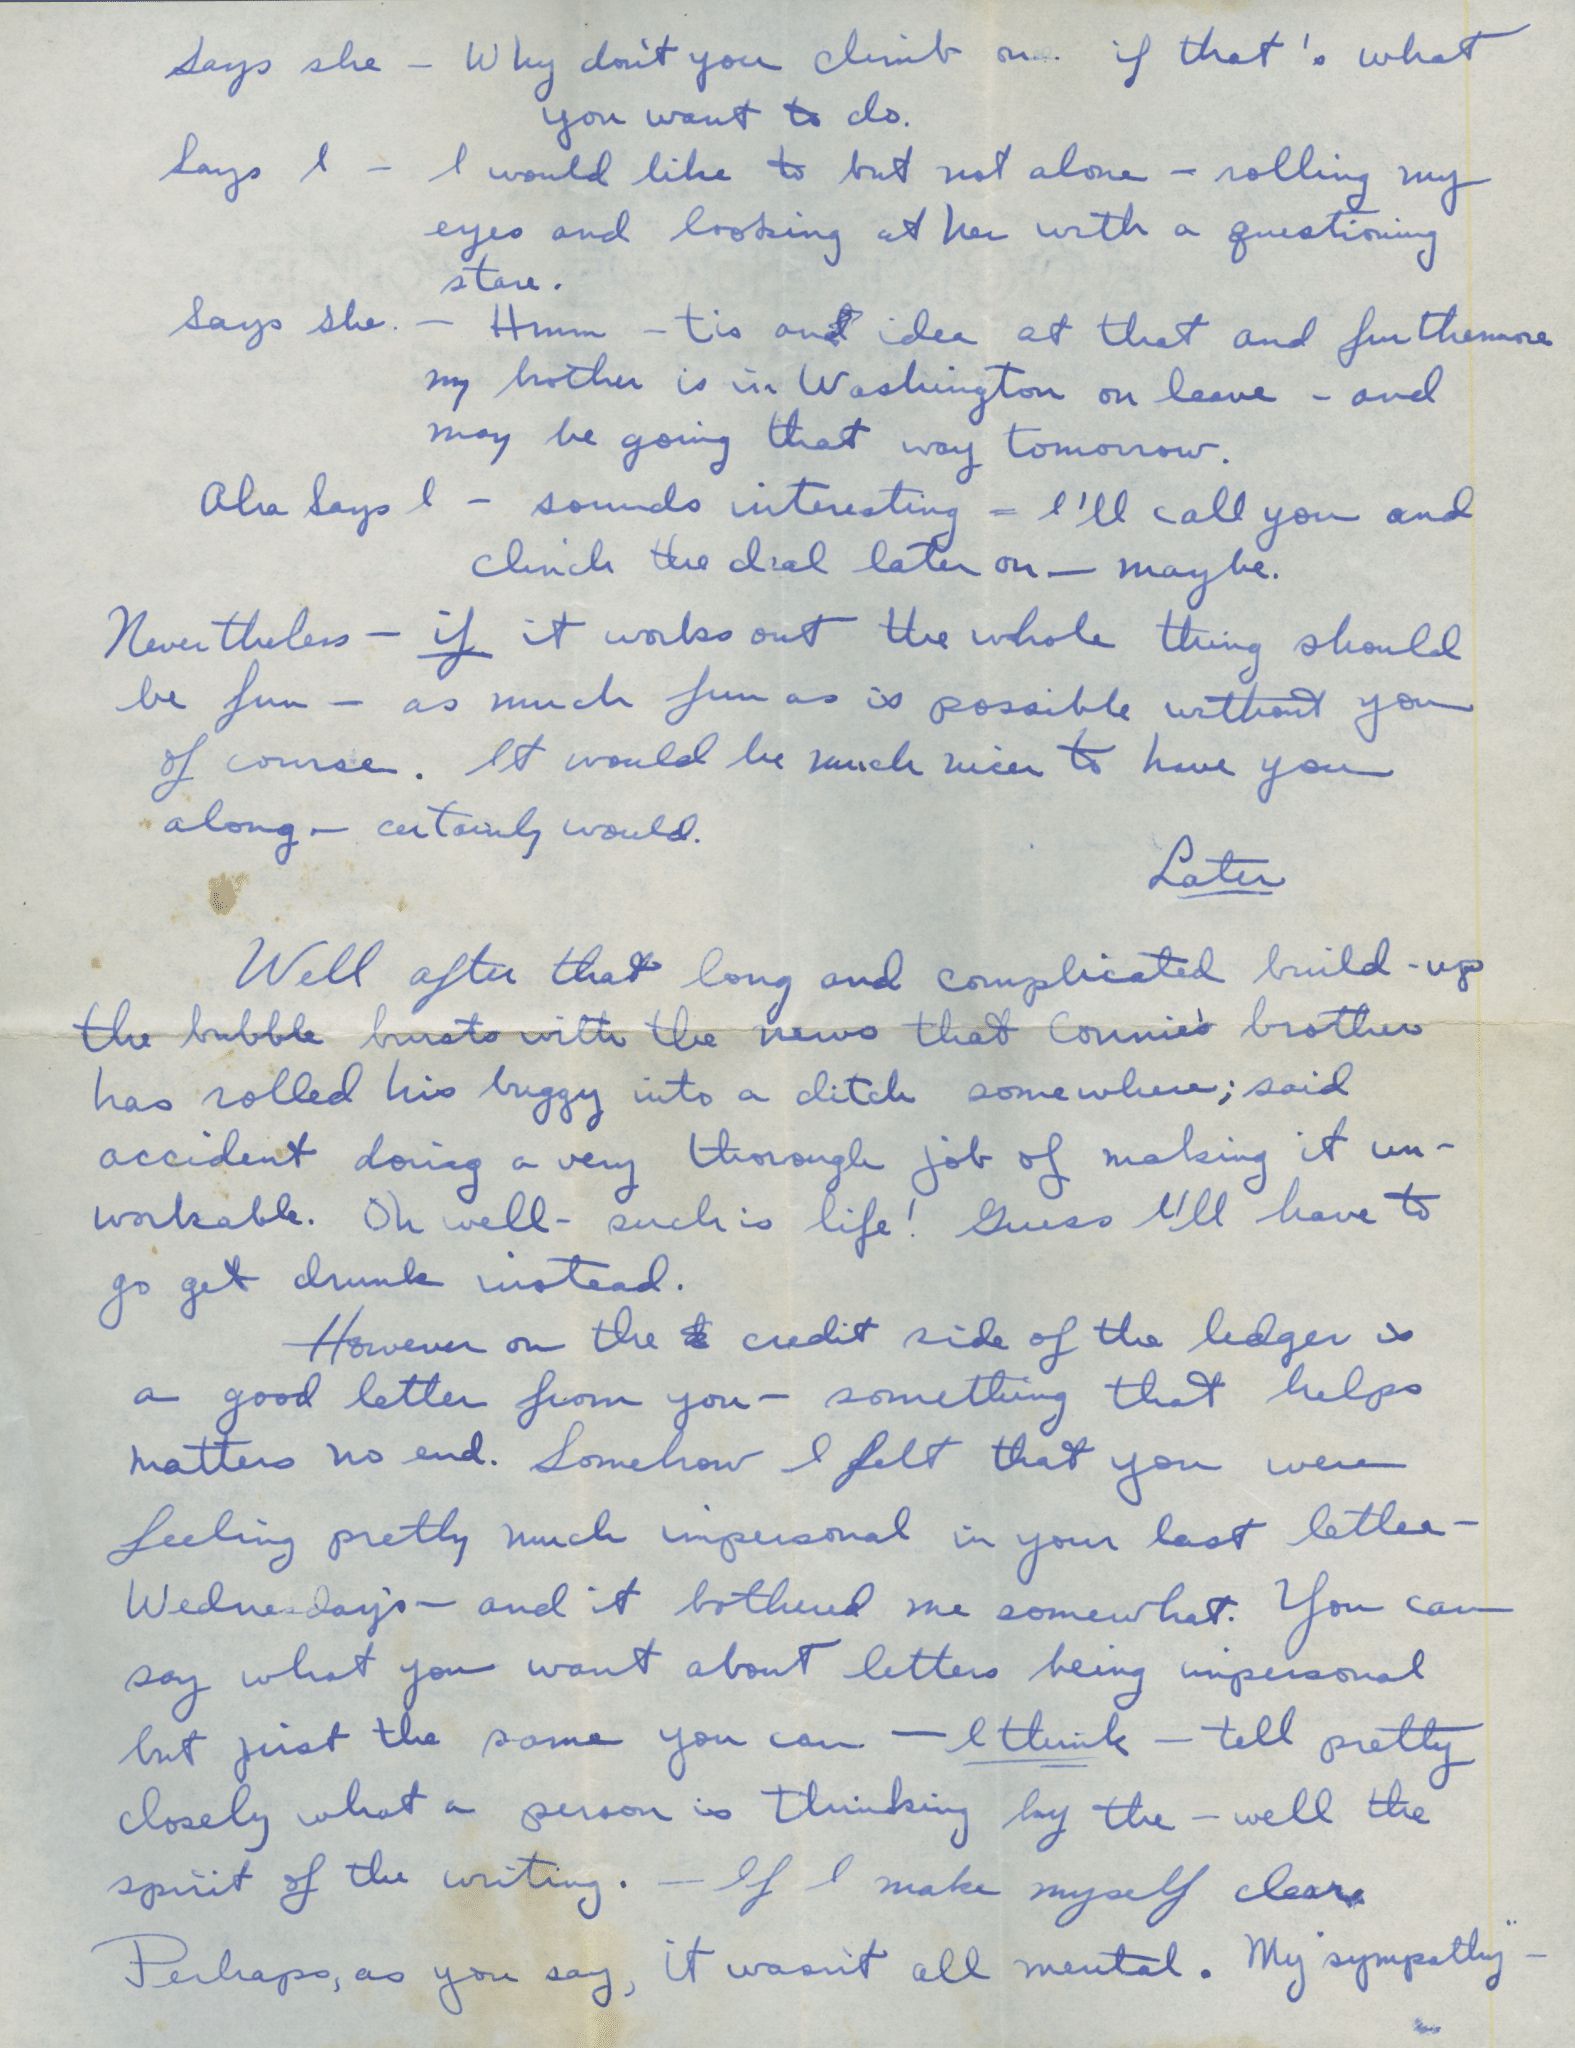 Says she — Why don't you climb on if that's what
you want to do.
Says I — I would like to but not alone — rolling my
eyes and looking at her with a questioning
stare.
Says she. — Hmm — tis an idea at that and furthermore
my brother is in Washington on leave — and
may be going that way tomorrow.
Aha Says I — sounds interesting — I'll call you and
clinch the deal later on — maybe.
Nevertheless — if it works out the whole thing should
be fun — as much fun as is possible without you
of course. It would be much nicer to have you
along — certainly would.
Later
Well after that long and complicated build-up
the bubble bursts with the news that Connie's brother
has rolled his buggy into a ditch somewhere; said
accident doing a very thorough job of making it un-
workable. Oh well - such is life! Guess I'll have to
go get drunk instead.
However on the credit side of the ledger is
a good letter from you — something that helps
matters no end. Somehow I felt that you were
feeling pretty much impersonal in your last letter —
Wednesday's — and it bothered me somewhat. You can
say what you want about letters being impersonal
but just the same you can — I think — tell pretty
closely what a person is thinking by the — well the
spirit of the writing. — If I make myself clear.
Perhaps, as you say, it wasn't all mental. My "sympathy" —